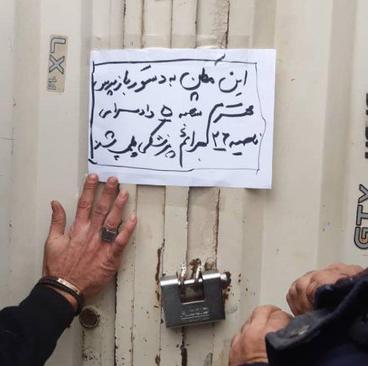 این مکان به دستور بازپرس
محترم شعبه ۵ دادسرای
ناحیه ۲۶ جرائم پزشکی پلمپ شد
LX
GTX